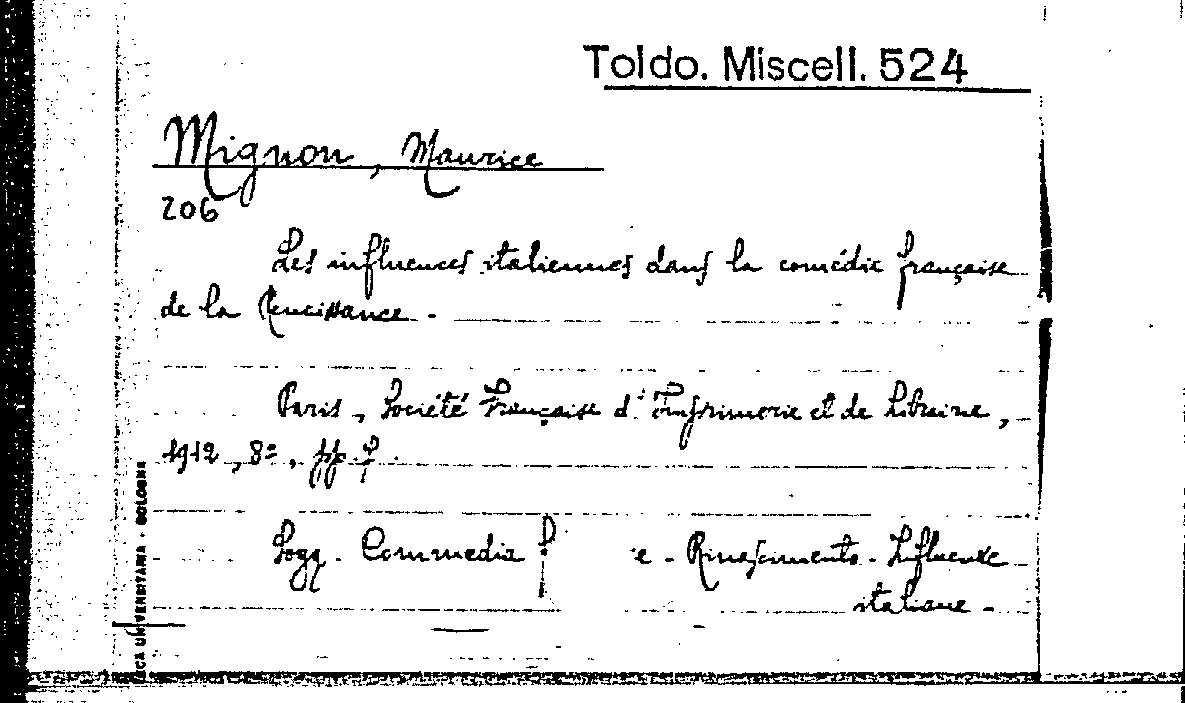 Toldo. Miscell. 524
Mignon, Maurice
206
Les influences italiennes dans la comédie française
de la Renaissance.
Paris, Société Française d'Imprimerie et de Librairie,
1912, 8º, pp.
Sogg. Commedia e - Rinascimento - Influenze
italiane -
UNIVERSITARIA - BOLOGNA